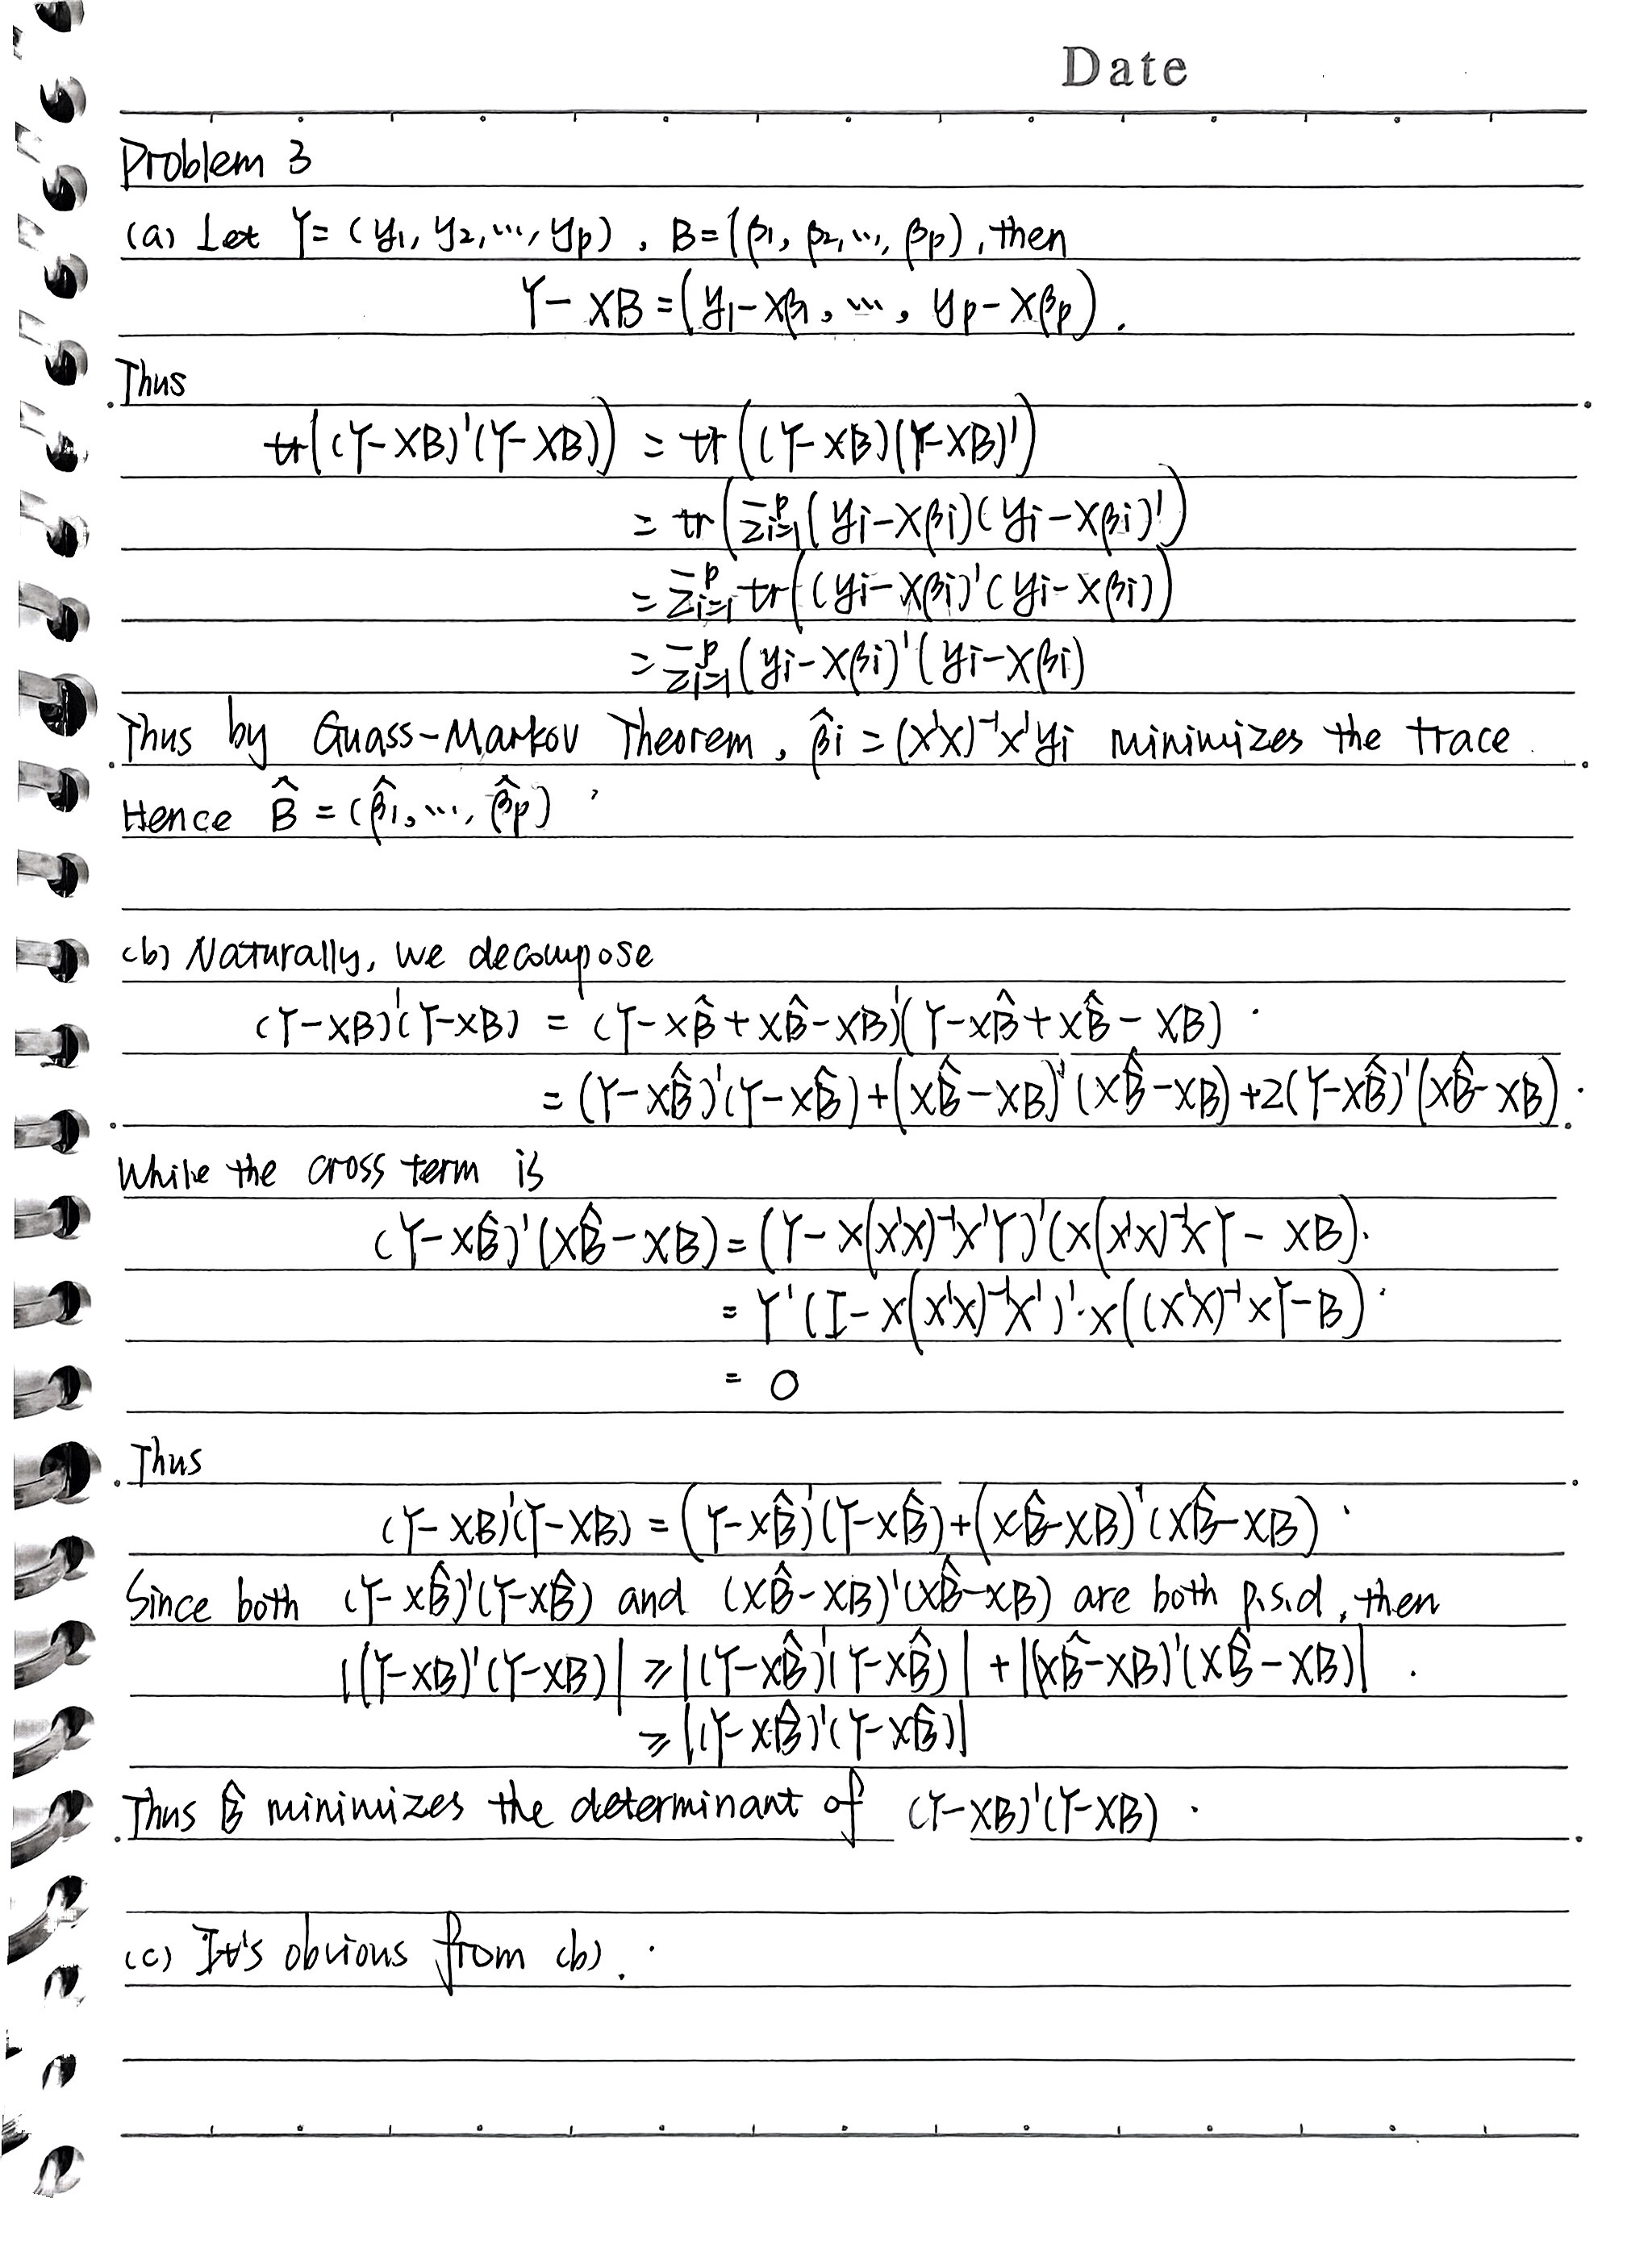 Date
Problem 3
(a) Let Y = (y1, y2, ..., yp), B = (β1, β2, ..., βp), then
Y - XB = (y1 - Xβ1, ..., yp - Xβp).
Thus
tr((Y-XB)'(Y-XB)) = tr((Y-XB)(Y-XB)')
= tr(Σ_{i=1}^p (yi - Xβi)(yi - Xβi)')
= Σ_{i=1}^p tr((yi - Xβi)'(yi - Xβi))
= Σ_{i=1}^p (yi - Xβi)'(yi - Xβi)
Thus by Guass-Markov Theorem, β̂i = (X'X)⁻¹X'yi minimizes the trace.
Hence B̂ = (β̂1, ..., β̂p)
(b) Naturally, we decompose
(Y-XB)'(Y-XB) = (Y-XB̂+XB̂-XB)'(Y-XB̂+XB̂-XB).
= (Y-XB̂)'(Y-XB̂)+(XB̂-XB)'(XB̂-XB)+2(Y-XB̂)'(XB̂-XB).
While the cross term is
(Y-XB̂)'(XB̂-XB) = (Y-X(X'X)⁻¹X'Y)'(X(X'X)⁻¹XY - XB).
= Y'(I-X(X'X)⁻¹X')'·X((X'X)⁻¹XY-B).
= 0
Thus
(Y-XB)'(Y-XB) = (Y-XB̂)'(Y-XB̂)+(XB̂-XB)'(XB̂-XB).
Since both (Y-XB̂)'(Y-XB̂) and (XB̂-XB)'(XB̂-XB) are both p.s.d, then
|(Y-XB)'(Y-XB)| ≥ |(Y-XB̂)'(Y-XB̂)| + |(XB̂-XB)'(XB̂-XB)|.
≥ |(Y-XB̂)'(Y-XB̂)|
Thus B̂ minimizes the determinant of (Y-XB)'(Y-XB).
(c) It's obvious from (b).